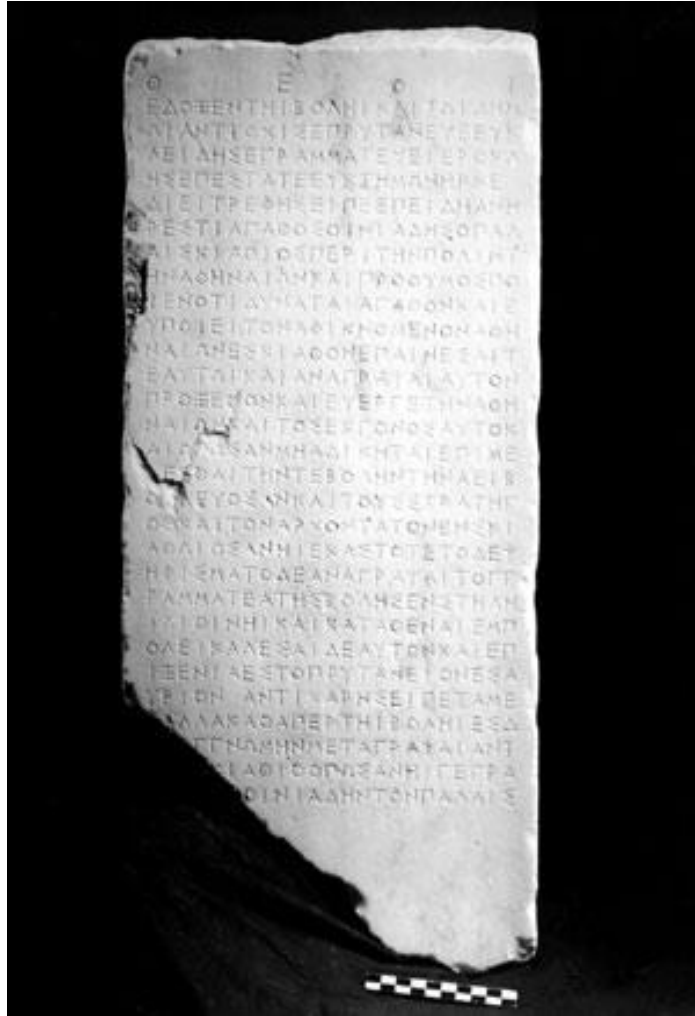 Θ Ε Ο Ι
ΕΔΟΞΕΝΤΗΙΒΟΛΗΙΚΑΙΤΩΙΔΗΜ
ΩΙΑΝΤΙΟΧΙΣΕΠΡΥΤΑΝΕΥΕΕΥΚ
ΛΕΙΔΗΣΕΓΡΑΜΜΑΤΕΥΕΙΕΡΟΚΛ
ΗΣΕΠΕΣΤΑΤΕΕΥΚΤΗΜΩΝΗΡΧΕ
ΔΙΕΙΤΡΕΦΗΣΕΙΠΕΕΠΕΙΔΗΑΝΗ
ΡΕΣΤΙΑΓΑΘΟΣΟΙΝΙΑΔΗΣΟΠΑΛ
ΑΙΣΚΙΑΘΙΟΣΠΕΡΙΤΗΝΠΟΛΙΝΤ
ΗΝΑΘΗΝΑΙΩΝΚΑΙΠΡΟΘΥΜΟΣΠΟ
ΙΕΝΟΤΙΔΥΝΑΤΑΙΑΓΑΘΟΝΚΑΙΕ
ΥΠΟΙΕΙΤΟΝΑΦΙΚΝΟΜΕΝΟΝΑΘΗ
ΝΑΙΩΝΕΣΚΙΑΘΟΝΕΠΑΙΝΕΣΑΙΤ
ΕΑΥΤΩΙΚΑΙΑΝΑΓΡΑΨΑΙΑΥΤΟΝ
ΠΡΟΞΕΝΟΝΚΑΙΕΥΕΡΓΕΤΗΝΑΘΗ
ΝΑΙΩΝΚΑΙΤΟΣΕΚΓΟΝΟΣΑΥΤΟΚ
ΑΙΟΠΩΣΑΝΜΗΑΔΙΚΗΤΑΙΕΠΙΜΕ
ΛΕΣΘΑΙΤΗΝΤΕΒΟΛΗΝΤΗΝΑΕΙΒ
ΟΛΕΥΟΣΑΝΚΑΙΤΟΥΣΣΤΡΑΤΗΓ
ΟΣΚΑΙΤΟΝΑΡΧΟΝΤΑΤΟΝΕΝΣΚΙ
ΑΘΩΙΟΣΑΝΗΙΕΚΑΣΤΟΤΕΤΟΔΕΨ
ΗΦΙΣΜΑΤΟΔΕΑΝΑΓΡΑΨΑΙΤΟΓΓ
ΡΑΜΜΑΤΕΑΤΗΣΒΟΛΗΣΕΝΣΤΗΛΗ
ΙΛΙΘΙΝΗΙΚΑΙΚΑΤΑΘΕΝΑΙΕΜΠ
ΟΛΕΙΚΑΛΕΣΑΙΔΕΑΥΤΟΝΚΑΙΕΠ
ΙΞΕΝΙΑΕΣΤΟΠΡΥΤΑΝΕΙΟΝΕΣΑ
ΥΡΙΟΝ ΑΝΤΙΧΑΡΗΣΕΙΠΕΤΑΜΕ
ΝΑΛΛΑΚΑΘΑΠΕΡΤΗΙΒΟΛΗΙΕΣΔ
ΓΓΝΩΜΗΝΜΕΤΑΓΡΑΨΑΙΑΝΤ
ΚΙΑΘΙΟΟΠΩΣΑΝΗΙΓΕΓΡΑ
ΟΙΝΙΑΔΗΝΤΟΝΠΑΛΑΙΣ